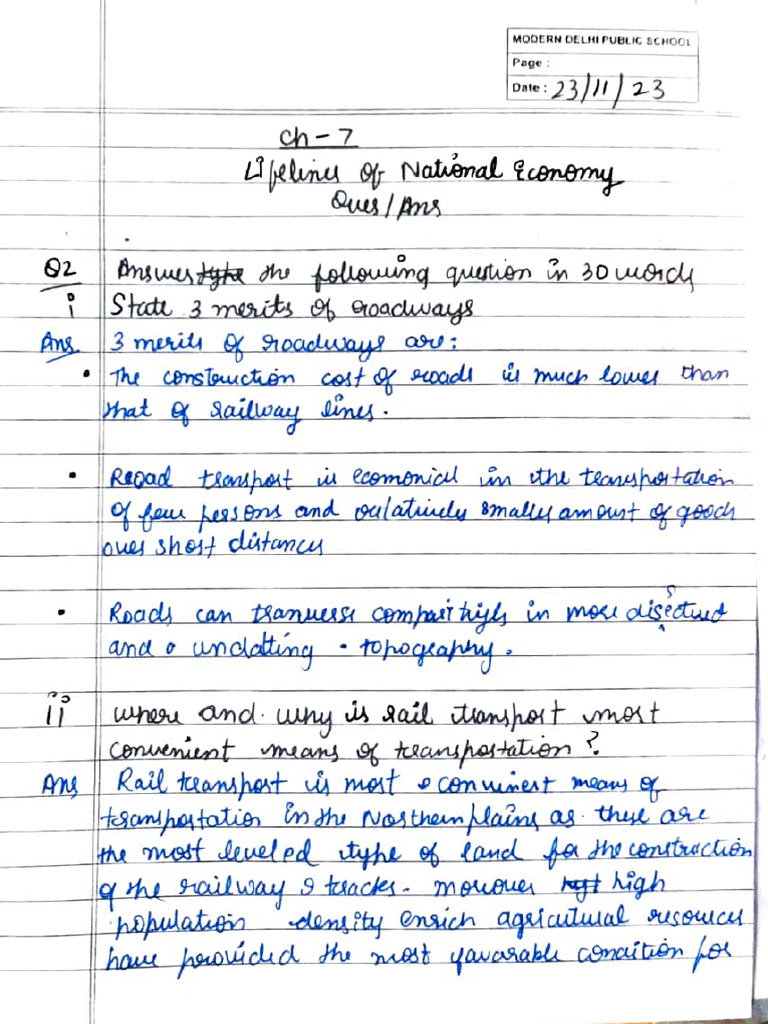 MODERN DELHI PUBLIC SCHOOL
Page :
Date : 23/11/23
Ch - 7
Lifelines of National Economy
Ques/Ans
Q2 Answer the following question in 30 words
i State 3 merits of roadways
Ans 3 merits of roadways are:
• The construction cost of roads is much lower than
that of railway lines.
• Rooad transport is ecomonical in the transportation
of few persons and relatively smally amount of goods
over short distances
• Roads can tranverse comparitvigly in more disected
and undatting topography.
ii where and why is rail transport most
convenient means of transportation?
Ans Rail transport is most convinest means of
transportation in the Northern plains as these are
the most leveled type of land for the construction
of the railway tracks. moreover high
population density enrich agricultural resources
have provided the most favarable condition for